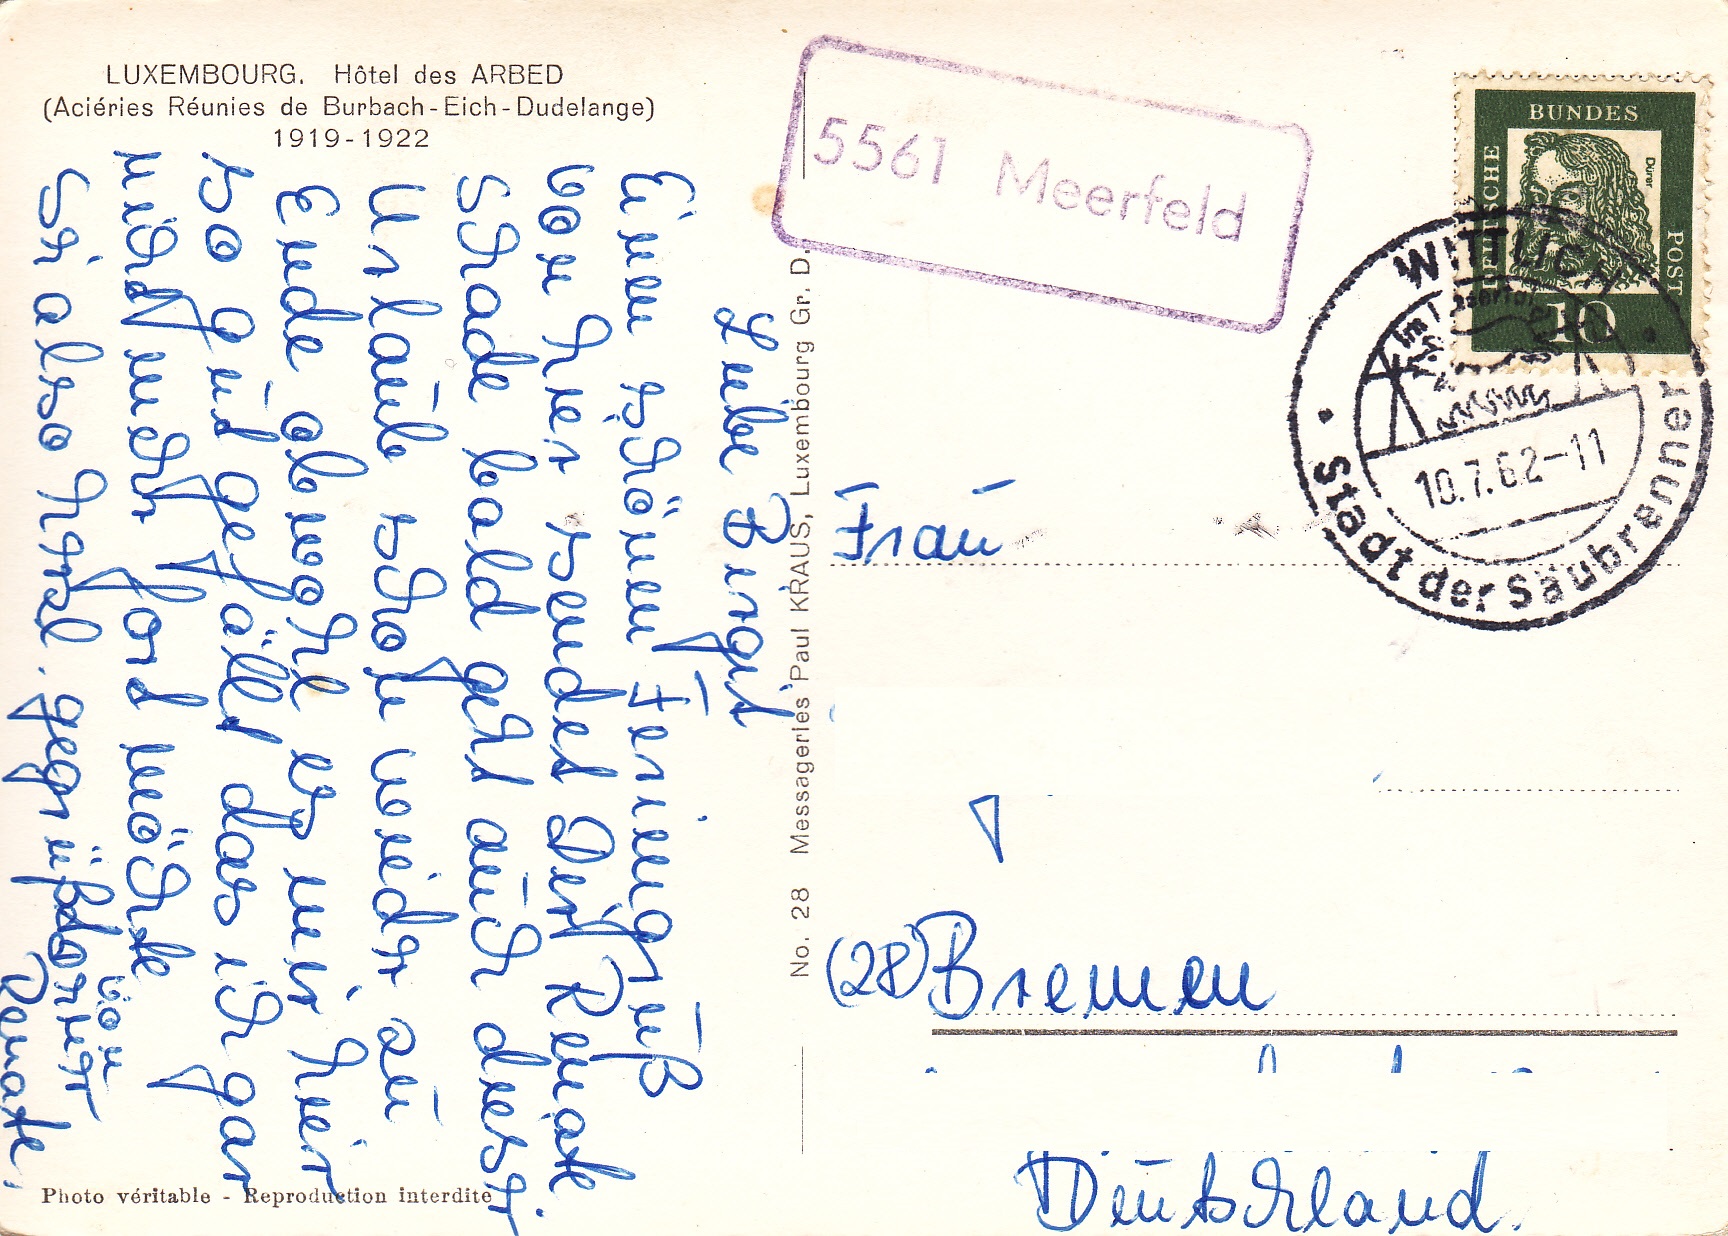 LUXEMBOURG. Hôtel des ARBED
(Aciéries Réunies de Burbach-Eich-Dudelange)
1919-1922
Liebe Birgit
Einen schönen Feriengruß
von hier sendet Dir Renate
Schade bald geht auch dieser
Urlaub schon wieder zu
Ende obwohl es mir hier
so gut gefällt das ich gar
nicht mehr fort möchte
Sei also herzl. gegrüßt
von
Renate.
Photo véritable - Reproduction interdite
No. 28 Messageries Paul KRAUS, Luxembourg Gr. D.
5561 Meerfeld
DEUTSCHE
BUNDES
POST
Dürer
10
WITTLICH
im Liesertal
10.7.62-11
Stadt der Säubrenner
Frau
(28) Bremen
Deutschland.